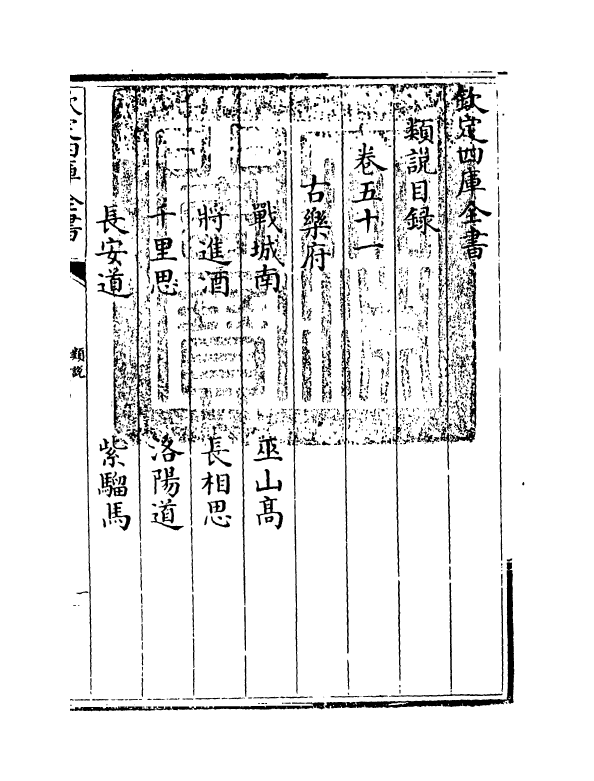 欽定四庫全書
類說目録
卷五十一
古樂府
戰城南　巫山髙
將進酒　長相思
千里思　洛陽道
長安道　紫騮馬
欽定四庫全書
類說
一